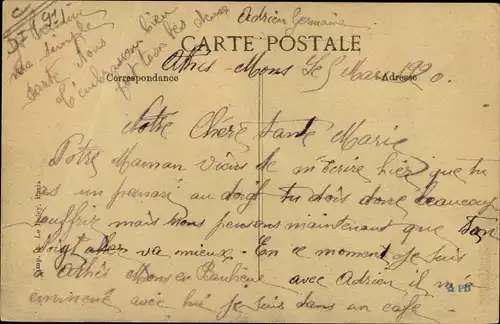 CARTE POSTALE
Correspondance
Adresse
Adrien Germaine
Athis-Mons Le 5 Mars 1920.
Notre Chère Tante Marie
Notre Maman viens de m'ecrire hier que tu
as un panari au doigt tu dois donc beaucoup
souffrir mais nous pensons maintenant que ton
doigt va mieux. En ce moment je suis
a Athis Mons en Banlieue avec Adrien il m'a
emmené avec lui je suis dans un café
ta santé Nous
t'embrassons bien
fort tous les deux
3 PB